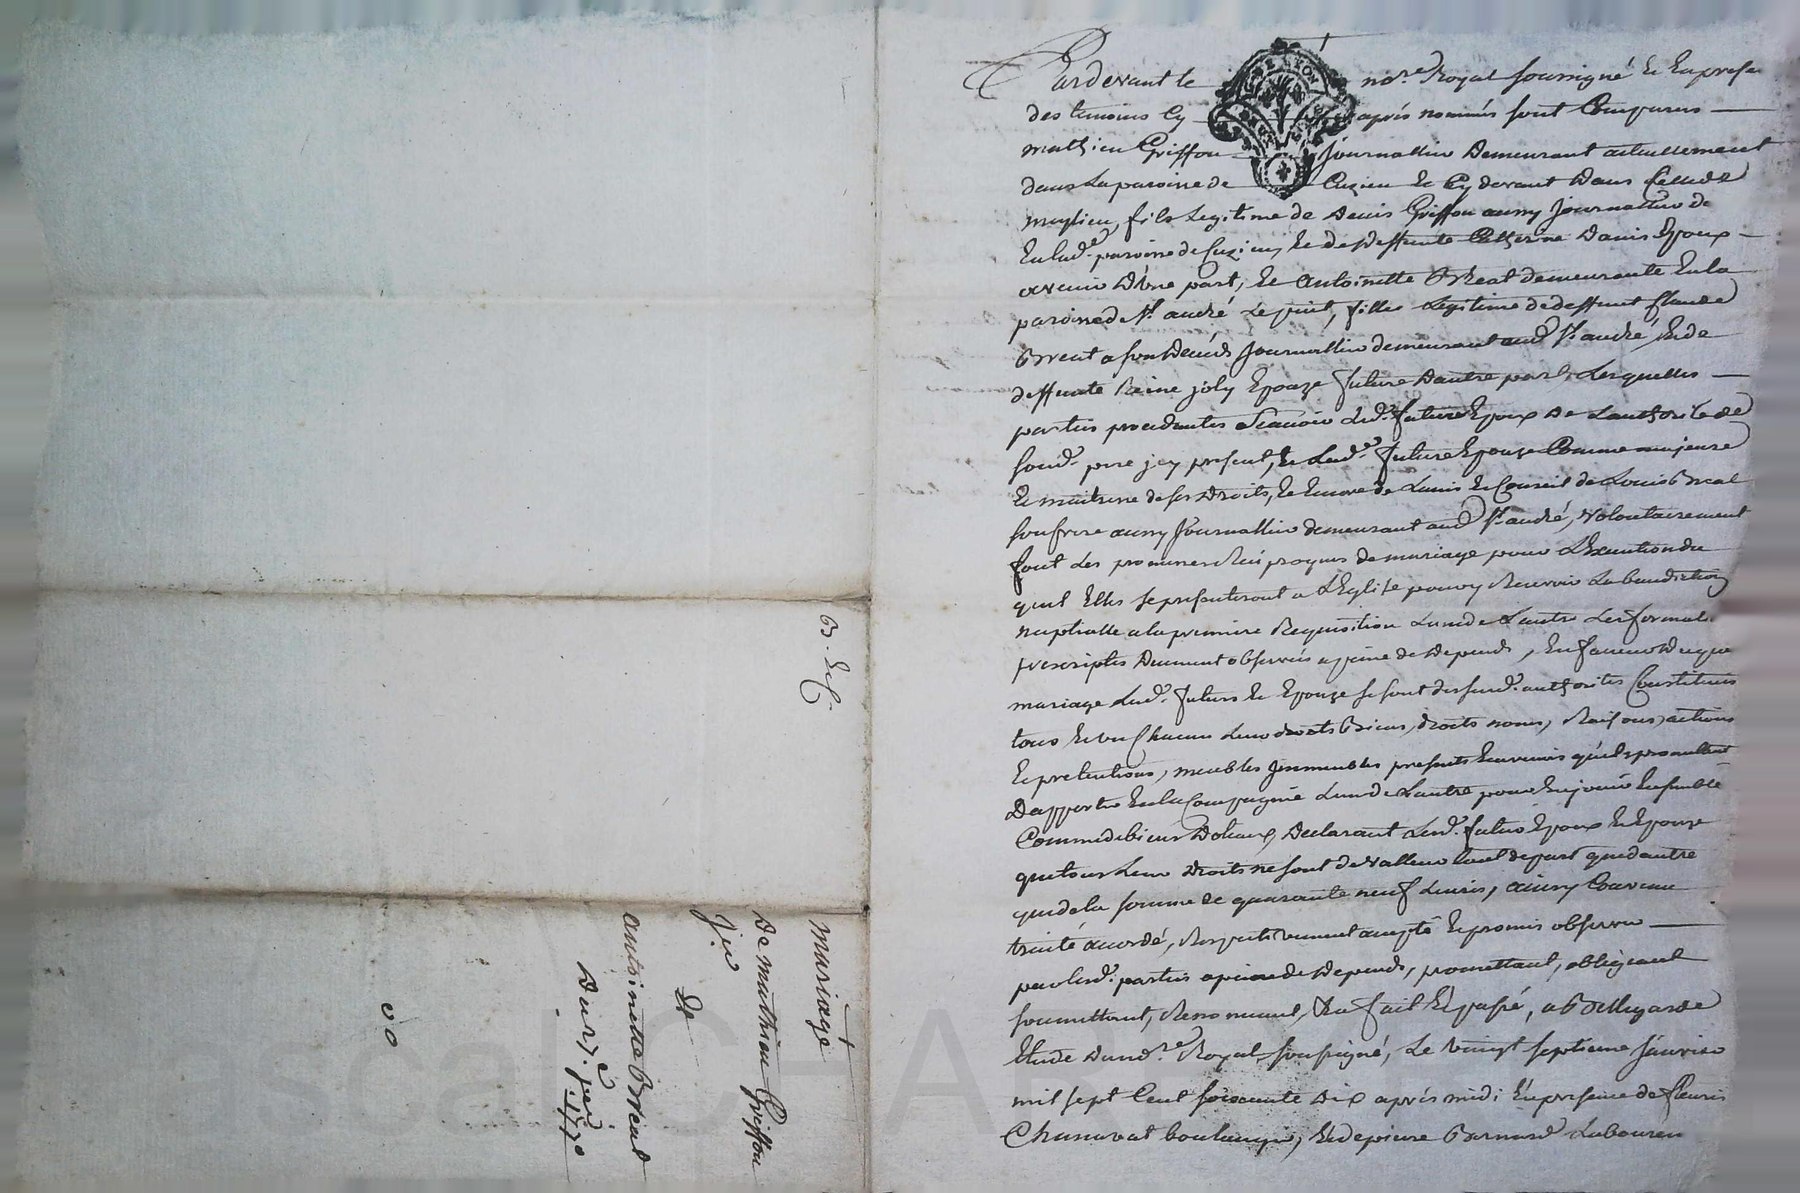 Pardevant le no.re Royal soussigné Et En presen
des temoins Cy aprés nommés sont Comparus
mathieu Griffon Journallier Demeurant actuellement
dans La paroisse de Cuzieu Et Cy devant Dans Celle de
meylieu, fils Legitime de Denis Griffon aussy Journallier de
En lad.e paroisse de Cuzieu, Et de deffunte Catherine Danis Epoux
avenir D'une part, Et Antoinette Breat demeurante En la
paroisse de St. andré Le puit, fille Legitime de deffunt Claude
Breat a son deceds Journallier demeurant aud St. andré, Et de
deffunte Reine joly Epouze future Dautre part, Lesquelles
parties procedantes Scavoir Led. futur Epoux de Lauthorité de
soud. pere jcy present, Et Lad.e future Epouze Comme majeure
Et maitresse de ses Droits, Et Encore de Lavis Et Conseil de Louis Breat
son frere aussy Journallier demeurant aud St. andré, volontairement
font Les promesses Reciproques de mariage pour L'Execution du
quel Elles se presenteront a L'Eglise pour y Recevoir La benediction
nuptialle a la premiere Requisition Lun de Lautre Les formali
prescriptes Deument observées a peine de Depends, En faveur Duque
mariage Led. futurs Et Epouze se sont desd. authorités Constitués
tous Et un Chacun Leurs droits Biens, droits noms, Raisons, actions
Et pretentions, meubles jmmeubles presents Et avenirs qu'ils promettent
Dapporter En la Compagnie Lun de Lautre pour En jouir Ensemble
Comme de biens Dotaux, Declarant Led. futur Epoux Et Epouze
que tous Leur droits ne sont de valleur tant de part que dautre
que de la somme de quarante neuf Livres, ainsy Convenu
traité accordé, Respectivement accepté Et promis observer
par Lesd. parties a peine de Depends, promettant, obligeant
soumettant, Renonceant, &a fait Et passé, a Bellegarde
Etude Dud no.re Royal soussigné, Le vingt septieme Janvier
mil sept Cent soixante Dix aprés midi En presence de fleuris
Chanavat boulanger, Et de pierre Bernard Laboureu
B. Ec.
mariage
De mathieu Griffon
De
antoinette Breat
Du 27.e janv. 1770